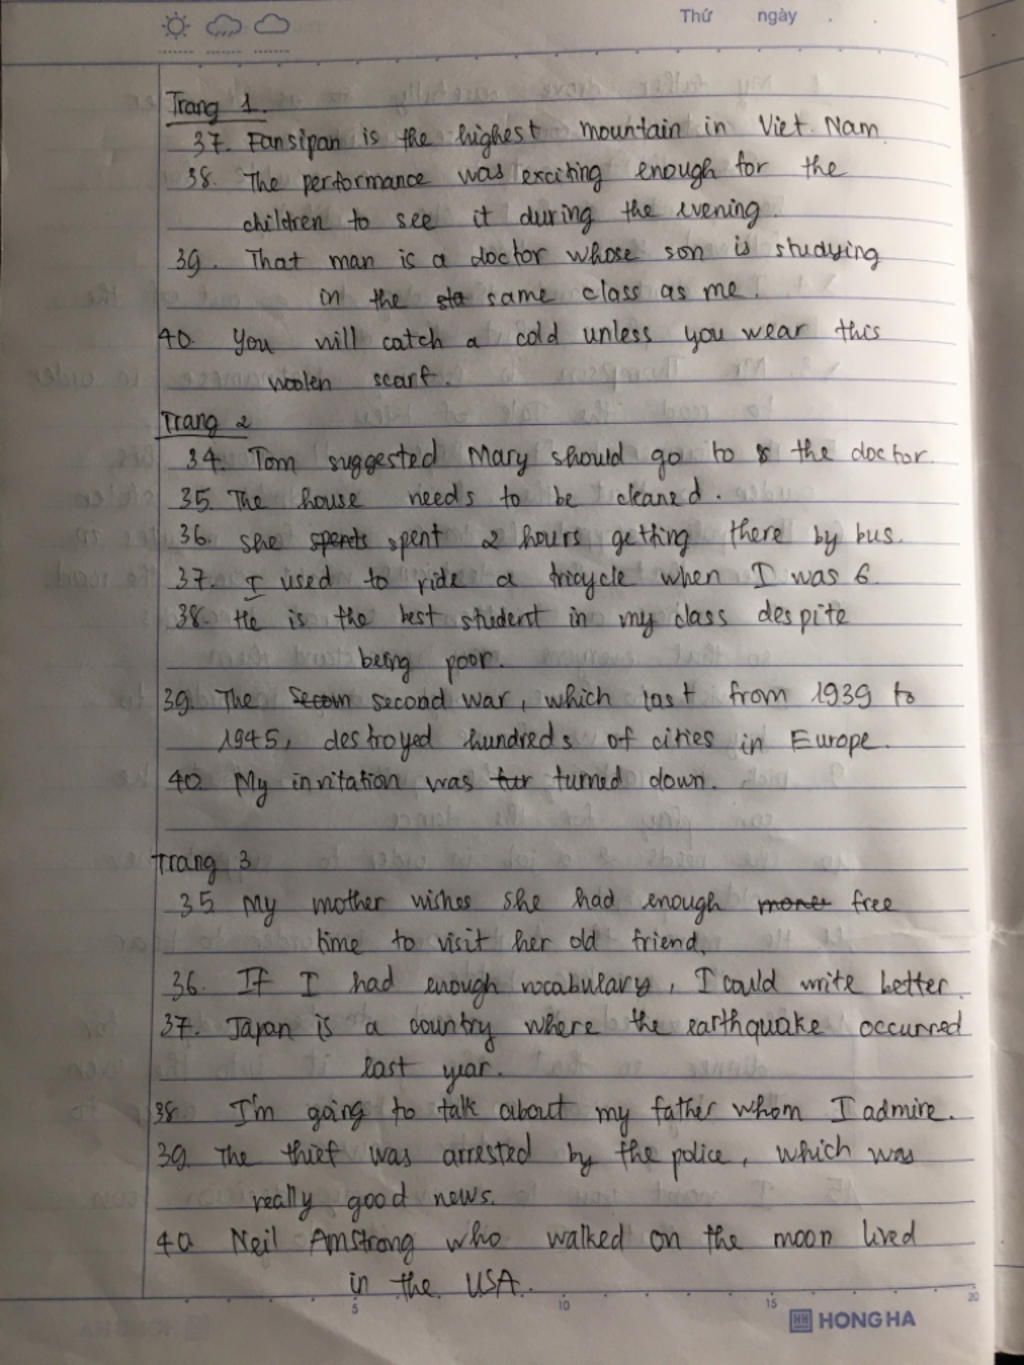 Thứ ngày
Trang 1.
37. Fansipan is the highest mountain in Viet Nam
38. The performance was exciting enough for the
children to see it during the evening.
39. That man is a doctor whose son is studying
in the same class as me.
40. You will catch a cold unless you wear this
woolen scarf.
Trang 2
34. Tom suggested Mary should go to the doctor.
35. The house needs to be cleaned.
36. She spents spent 2 hours getting there by bus.
37. I used to ride a tricycle when I was 6.
38. He is the best student in my class despite
being poor.
39. The Secon second war, which last from 1939 to
1945, destroyed hundreds of cities in Europe.
40. My invitation was tur turned down.
Trang 3
35 My mother wishes she had enough free
time to visit her old friend.
36. If I had enough vocabulary, I could write better.
37. Japan is a country where the earthquake occurred
last year.
38. I'm going to talk about my father whom I admire.
39. The thief was arrested by the police, which was
really good news.
40 Neil Amstrong who walked on the moon lived
in the USA.
5 10 15 20
HH HONG HA